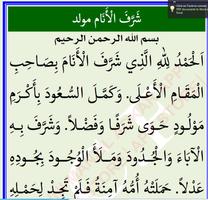 شَرَّفَ الْأَنَام مولد
بسم الله الرحمن الرحيم
اَلْحَمْدُ لِلَّهِ الَّذِي شَرَّفَ الْأَنَامَ بِصَاحِبِ
الْمَقَامِ الْأَعْلَى. وَكَمَّلَ السُّعُودَ بِأَكْرَمِ
مَوْلُودٍ حَوَى شَرَفًا وَفَضْلًا. وَشَرَّفَ بِهِ
الْآبَاءَ وَالْجُدُودَ وَمَلَأَ الْوُجُودَ بِجُودِهِ
عَدْلًا. حَمَلَتْهُ أُمُّهُ آمِنَةُ فَلَمْ تَجِدْ لِحَمْلِهِ